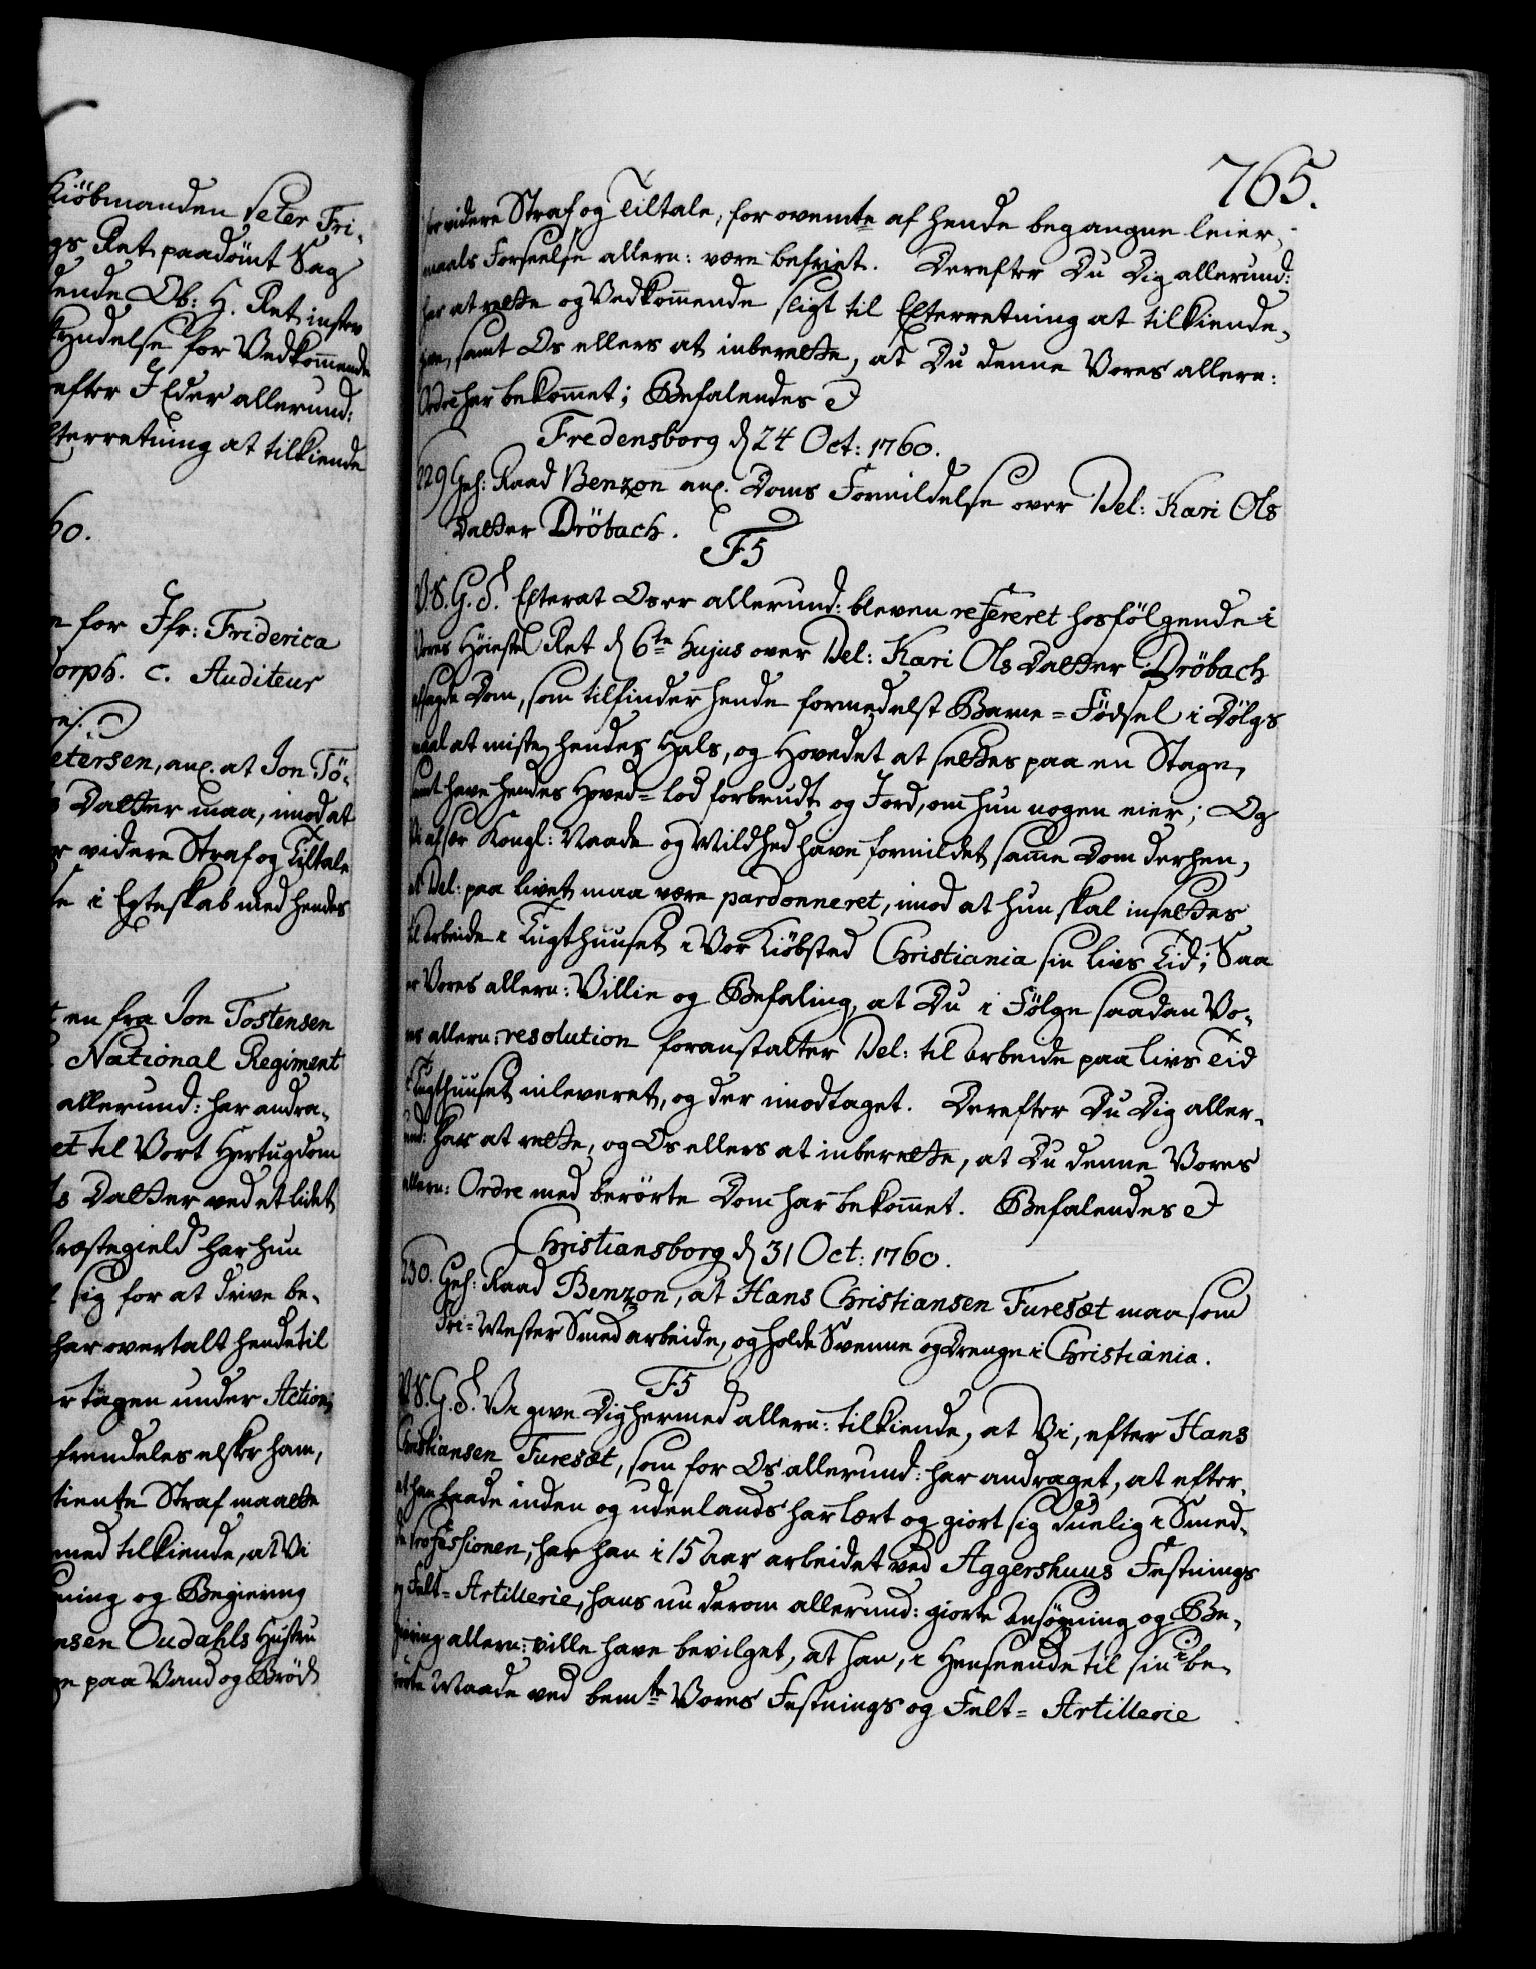 Kiöbmanden Peter Fri-
gs Ret paadömt Sag
dende Ob: H. Ret instev
kyndelse for Vedkom̄ende
efter I Eder allerund:
fterretning at tilkiende
60.
e for Jfr: Friderica
dorph. c. Auditeur
etersen, anl. at Jon Tö-
s Datter maa, imod at
or videre Straf og Tiltale
se i Egteskab med hendes
t en fra Jon Tostensen
National Regiment
allerund: har andra-
et til Vort Hertugdom
ls Datter ved et lidet
Præstegield har hun
sig for at drive be-
har overtalt hende til
er tagen under Action,
fremdeles elsker ham,
tiente Straf maatte
med tilkiende, at Vi
ning og Begiering
nsen Oudahls Hustru
ge paa Vand og Bröd
765.
for videre Straf og Tiltale, for ovemte af hende begangne leier-
maals Forseelse allern: være befriet. Derefter Du Dig allerund:
har at rette og Vedkom̄ende sligt til Efterretning at tilkiende-
give, samt Os ellers at inberette, at Du denne Vores allern:
Ordre har bekom̄et; Befalendes
Fredensborg d 24 Oct: 1760.
229 Geh: Raad Benzon anl. Doms Formildelse over Del: Kari Ols
Datter Dröbach.
F5
V. S. G. T. Efterat Os er allerund: bleven refereret hosfölgende i
Vores Höieste Ret d 6te hujus over Del: Kari Ols Datter Dröbach
afsagde Dom, som tilfinder hende formedelst Barne=Födsel i Dölgs
maal at miste hendes Hals, og Hovedet at settes paa en Stage,
samt have hendes Hoved=lod forbrudt og Jord, om hun nogen eier; Og
Vi af sær Kongl: Naade og Mildhed have formildet sam̄e Dom derhen,
at Del: paa livet maa være pardonneret, imod at hun skal insettes
til Arbeide i Tugthuuset i Vor Kiöbsted Christiania sin livs Tid; Saa
er Vores allern: Villie og Befaling, at Du i Fölge saadan Vo-
res allern: resolution foranstalter Del: til Arbeide paa livs Tid
i Tugthuuset inleveret, og der imodtaget. Derefter Du Dig aller-
und: har at rette, og Os ellers at inberette, at Du denne Vores
allern: Ordre med berörte Dom har bekom̄et. Befalendes
Christiansborg d 31 Oct: 1760.
230. Geh: Raad Benzon, at Hans Christiansen Furesæt maa som
Fri=Mester Smed arbeide, og holde Svenne og Drenge i Christiania.
F5
V. S. G. T. Vi give Dig hermed allern: tilkiende, at Vi, efter Hans
Christiansen Furesæt, som for Os allerund: har andraget, at efter-
at han baade inden og udenlands har lært og giort sig duelig i Smed-
de Professionen, har han i 15 Aar arbeidet ved Aggershuus Festnings
og Felt=Artillerie, hans nu derom allerund: giorte Ansögning og Be-
giering allern: ville have bevilget, at han, i Henseende til sin i be-
rörte Maade ved bemte Vores Festnings og Felt= Artillerie